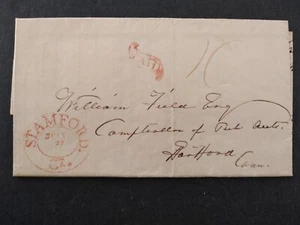 PAID
10
William Field Esq
Comptroller of Pub. Accts.
Hartford
Conn.
STAMFORD
27
Ct.